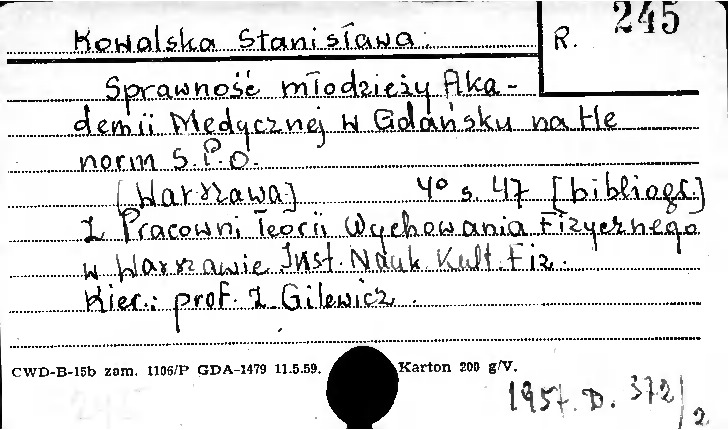 Kowalska Stanisława.
R. 245
Sprawność młodzieży Aka-
demii Medycznej w Gdańsku na tle
norm S.P.O.
[Warszawa] 4° s. 47 [bibliogr.]
Z Pracowni Teorii Wychowania Fizycznego
w Warszawie Inst. Nauk Kult. Fiz.
Kier.: prof. Z Gilewicz.
CWD-B-15b zam. 1106/P GDA-1479 11.5.59. Karton 200 g/V.
1957. D. 372/2